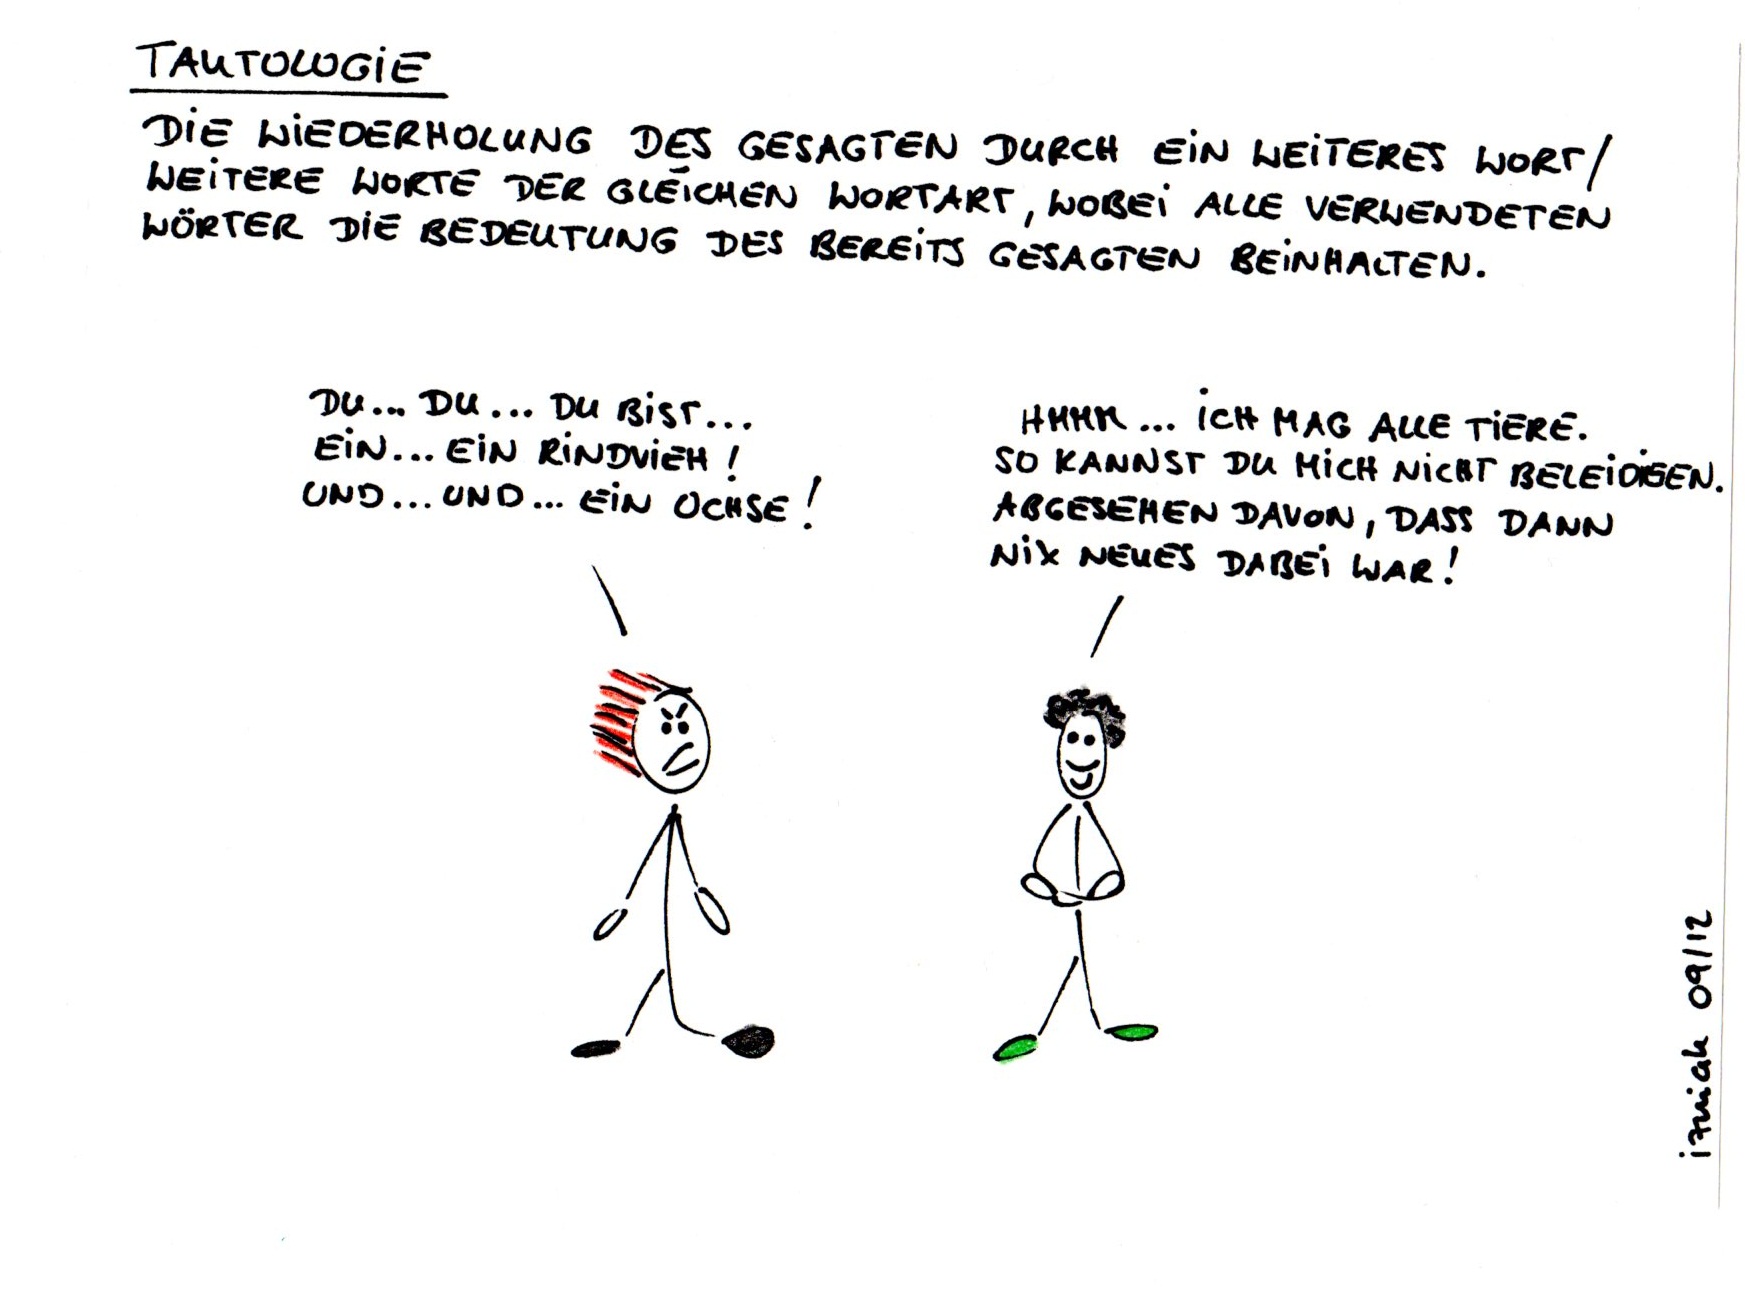 TAUTOLOGiE
DiE WiEDERHOLUNG DES GESAGTEN DURCH EiN WEiTERES WORT/
WEiTERE WORTE DER GLEiCHEN WORTART, WOBEi ALLE VERWENDETEN
WÖRTER DiE BEDEUTUNG DES BEREiTS GESAGTEN BEiNHALTEN.
DU... DU... DU BiST...
EiN... EiN RiNDViEH!
UND... UND... EiN OCHSE!
HMMM... iCH MAG ALLE TiERE.
SO KANNST DU MiCH NiCHT BELEiDiGEN.
ABGESEHEN DAVON, DASS DANN
NiX NEUES DABEi WAR!
09/12